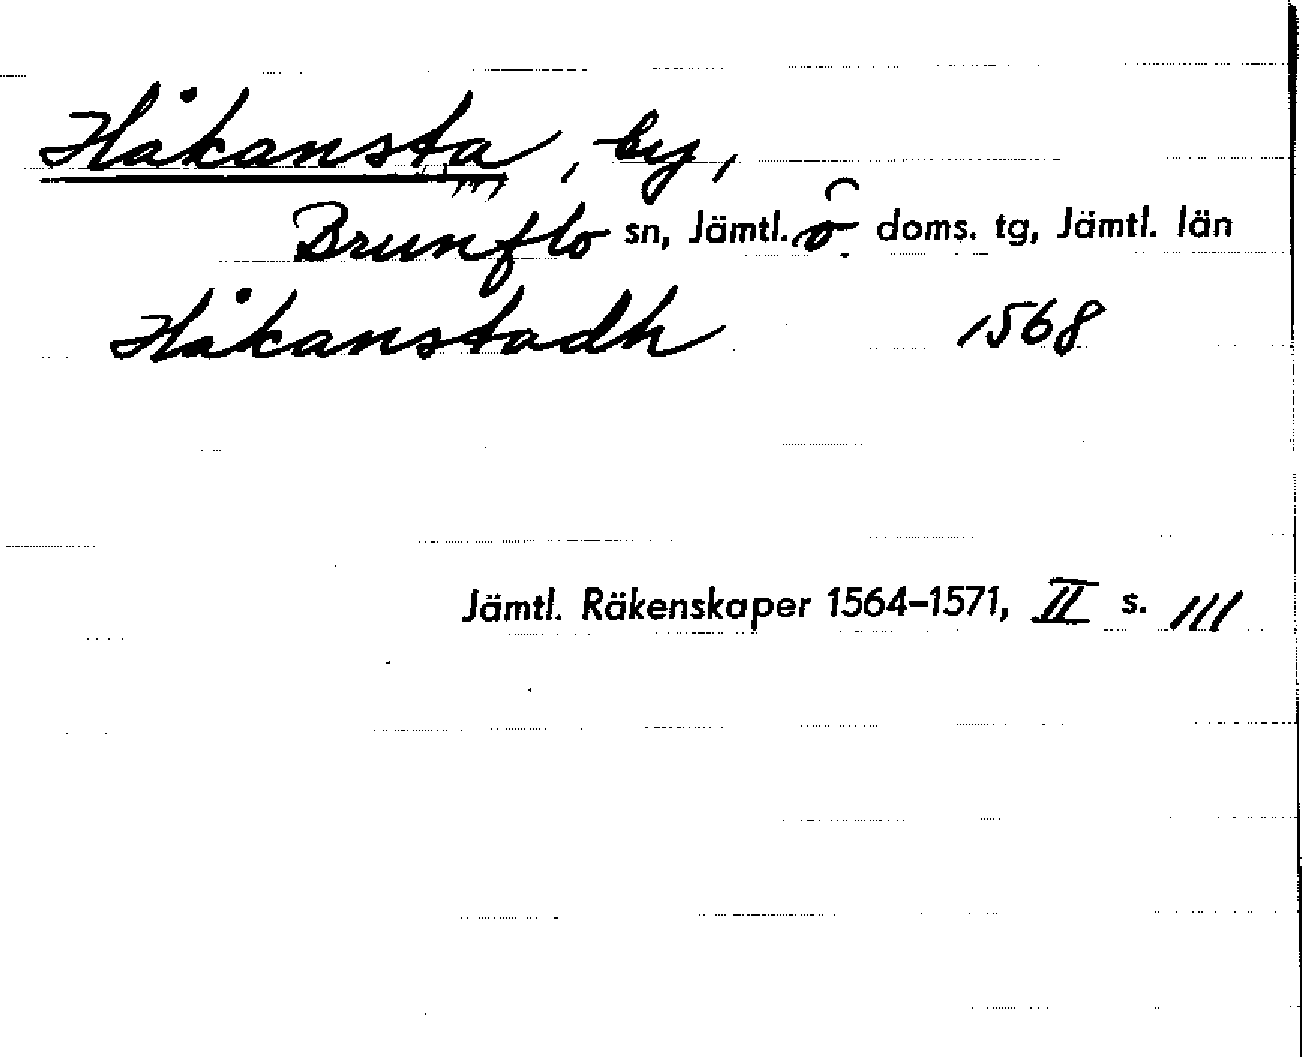 Håkansta, by,
Brunflo sn, Jämtl. ö. doms. tg, Jämtl. län
Håkanstadh 1568
Jämtl. Räkenskaper 1564-1571, II s. 111